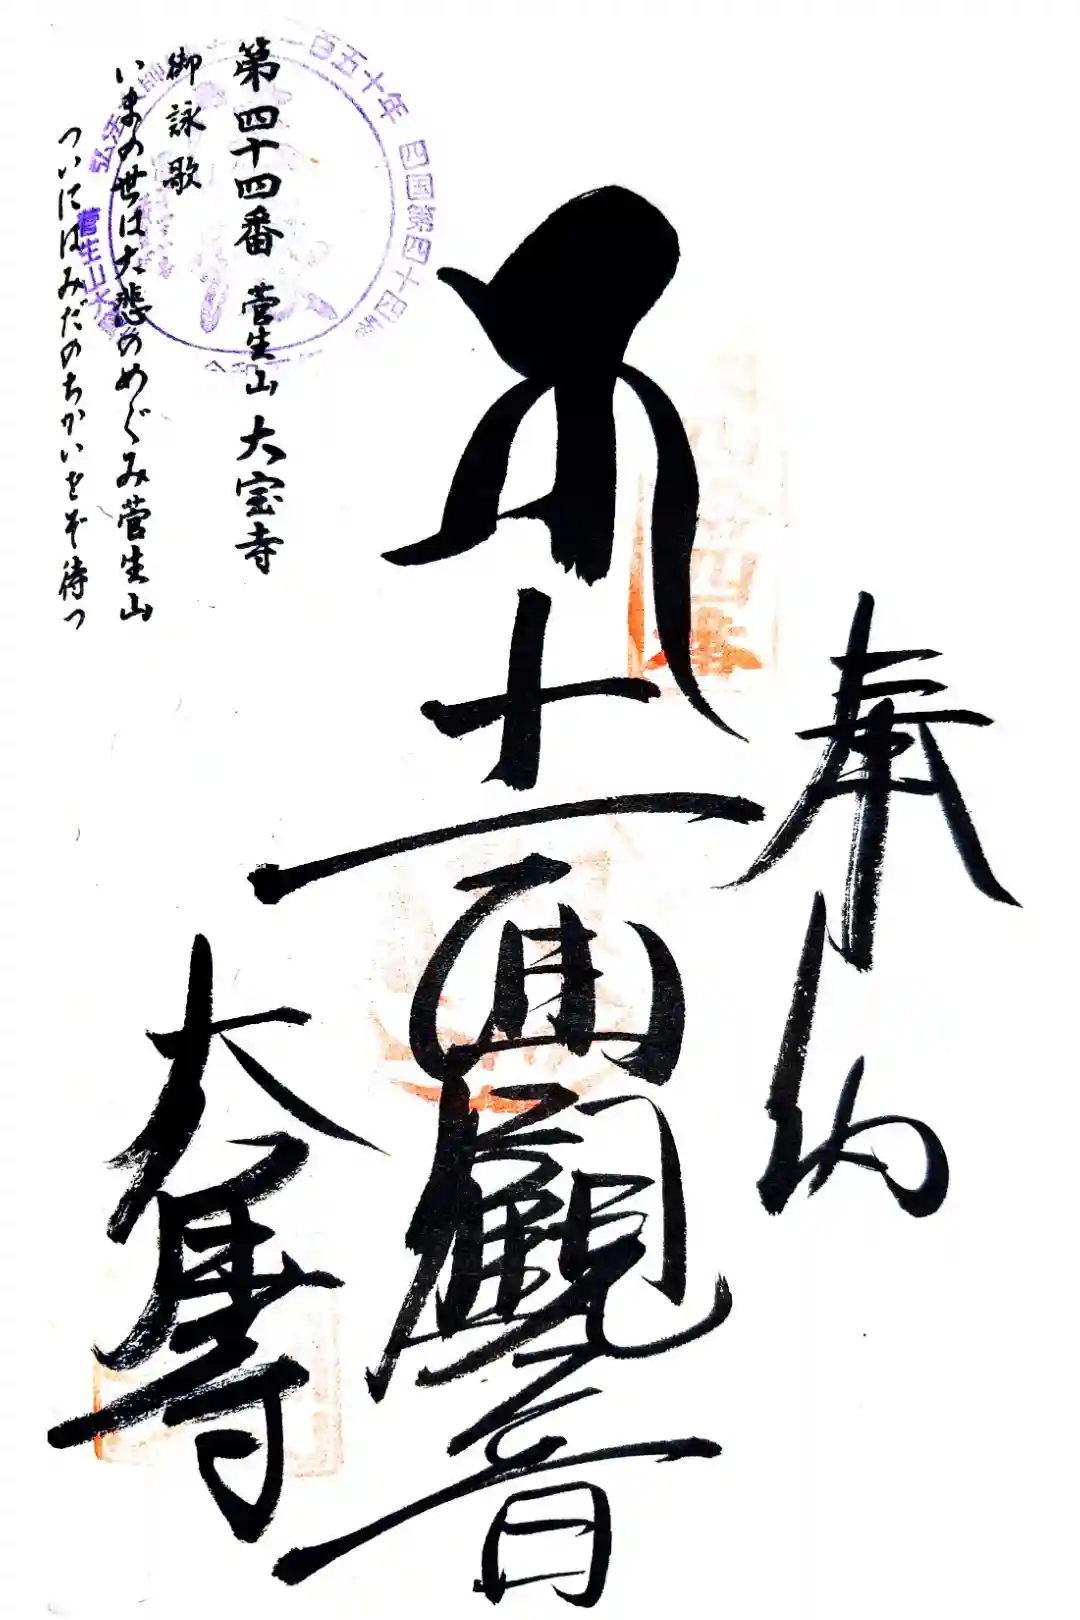 奉納
十一面観音
大宝寺
第四十四番 菅生山 大宝寺
御詠歌
いまの世は大悲のめぐみ菅生山
ついにはみだのちかいをぞ待つ
百五十年 四国第四十四
菅生山大